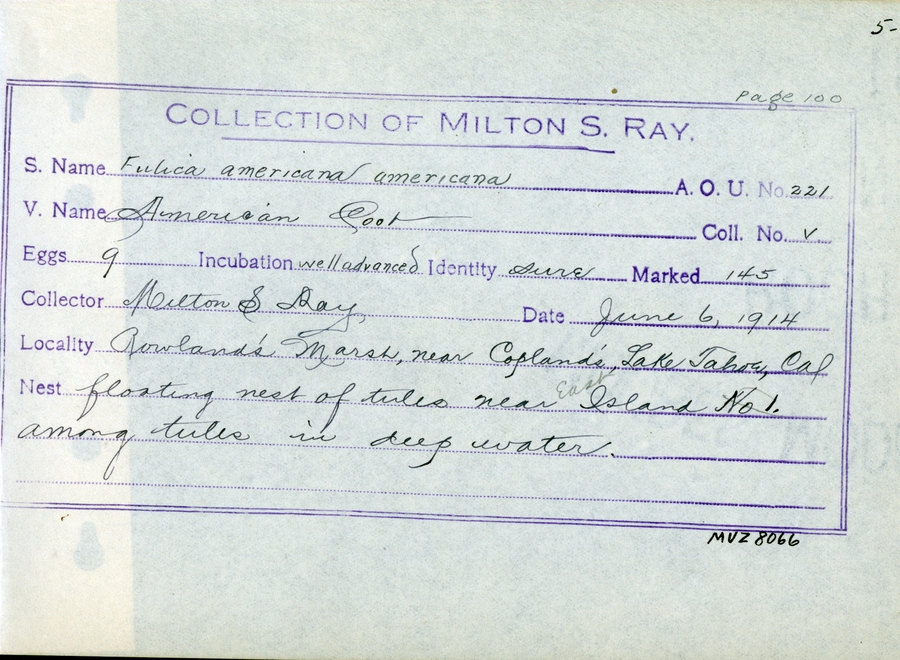 5-
Page 100
COLLECTION OF MILTON S. RAY.
S. Name Fulica americana americana A. O. U. No. 221
V. Name American Coot Coll. No. v
Eggs 9 Incubation well advanced Identity sure Marked 145
Collector Milton S Ray, Date June 6, 1914
Locality Rowland's Marsh, near Copland's, Lake Tahoe, Cal
Nest floating nest of tules near East Island No 1.
among tules in deep water.
MVZ 8066